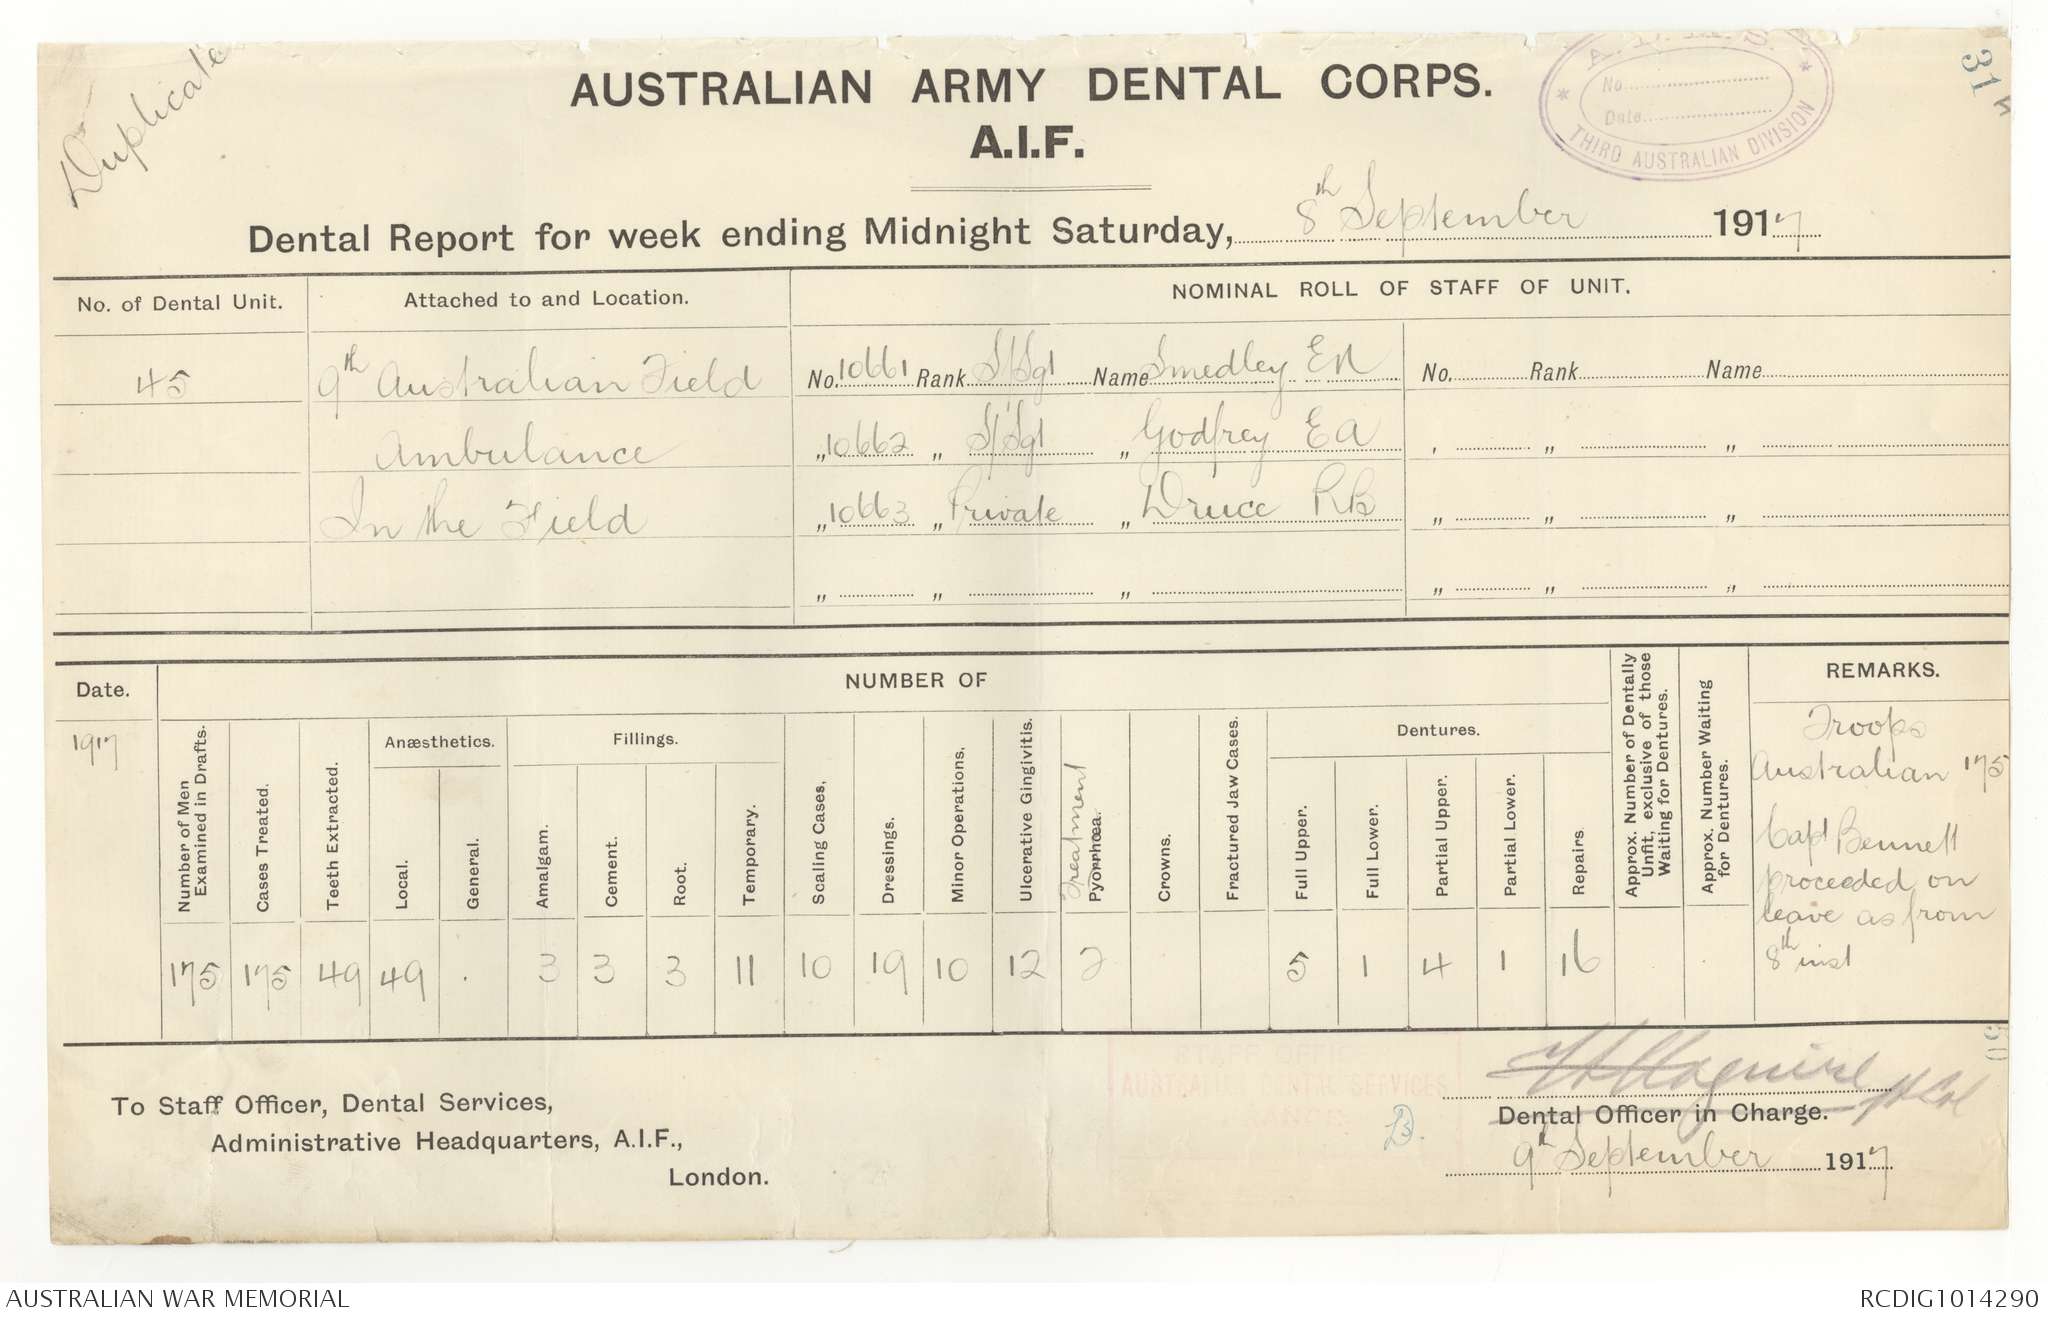 Duplicate
AUSTRALIAN ARMY DENTAL CORPS.
A.I.F.
No.
Date
THIRD AUSTRALIAN DIVISION
31
Dental Report for week ending Midnight Saturday, 8th September 1917
No. of Dental Unit. Attached to and Location. NOMINAL ROLL OF STAFF OF UNIT.
45 9th Australian Field No. 10661 Rank S/Sgt Name Smedley No. Rank Name
Ambulance „ 10662 „ S/Sgt „ Godfrey E A „ „
In the Field „ 10663 „ Private „ Druce R B „ „ „
„ „ „ „ „ „
Date. NUMBER OF REMARKS.
1917
Number of Men Examined in Drafts.
Cases Treated.
Teeth Extracted.
Anæsthetics.
Local.
General.
Fillings.
Amalgam.
Cement.
Root.
Temporary.
Scaling Cases.
Dressings.
Minor Operations.
Ulcerative Gingivitis.
Treatment Pyorrhœa.
Crowns.
Fractured Jaw Cases.
Dentures.
Full Upper.
Full Lower.
Partial Upper.
Partial Lower.
Repairs.
Approx. Number of Dentally Unfit, exclusive of those Waiting for Dentures.
Approx. Number Waiting for Dentures.
175 175 49 49 . 3 3 3 11 10 19 10 12 2 5 1 4 1 16 . .
Troops
Australian 175
Capt Bennett
proceeded on
leave as from
8th inst
50
STAFF OFFIC
AUSTRALIAN DENTAL SERVICES
To Staff Officer, Dental Services,
Administrative Headquarters, A.I.F.,
London.
B.
Maguire
Dental Officer in Charge.
9th September 1917
AUSTRALIAN WAR MEMORIAL
RCDIG1014290